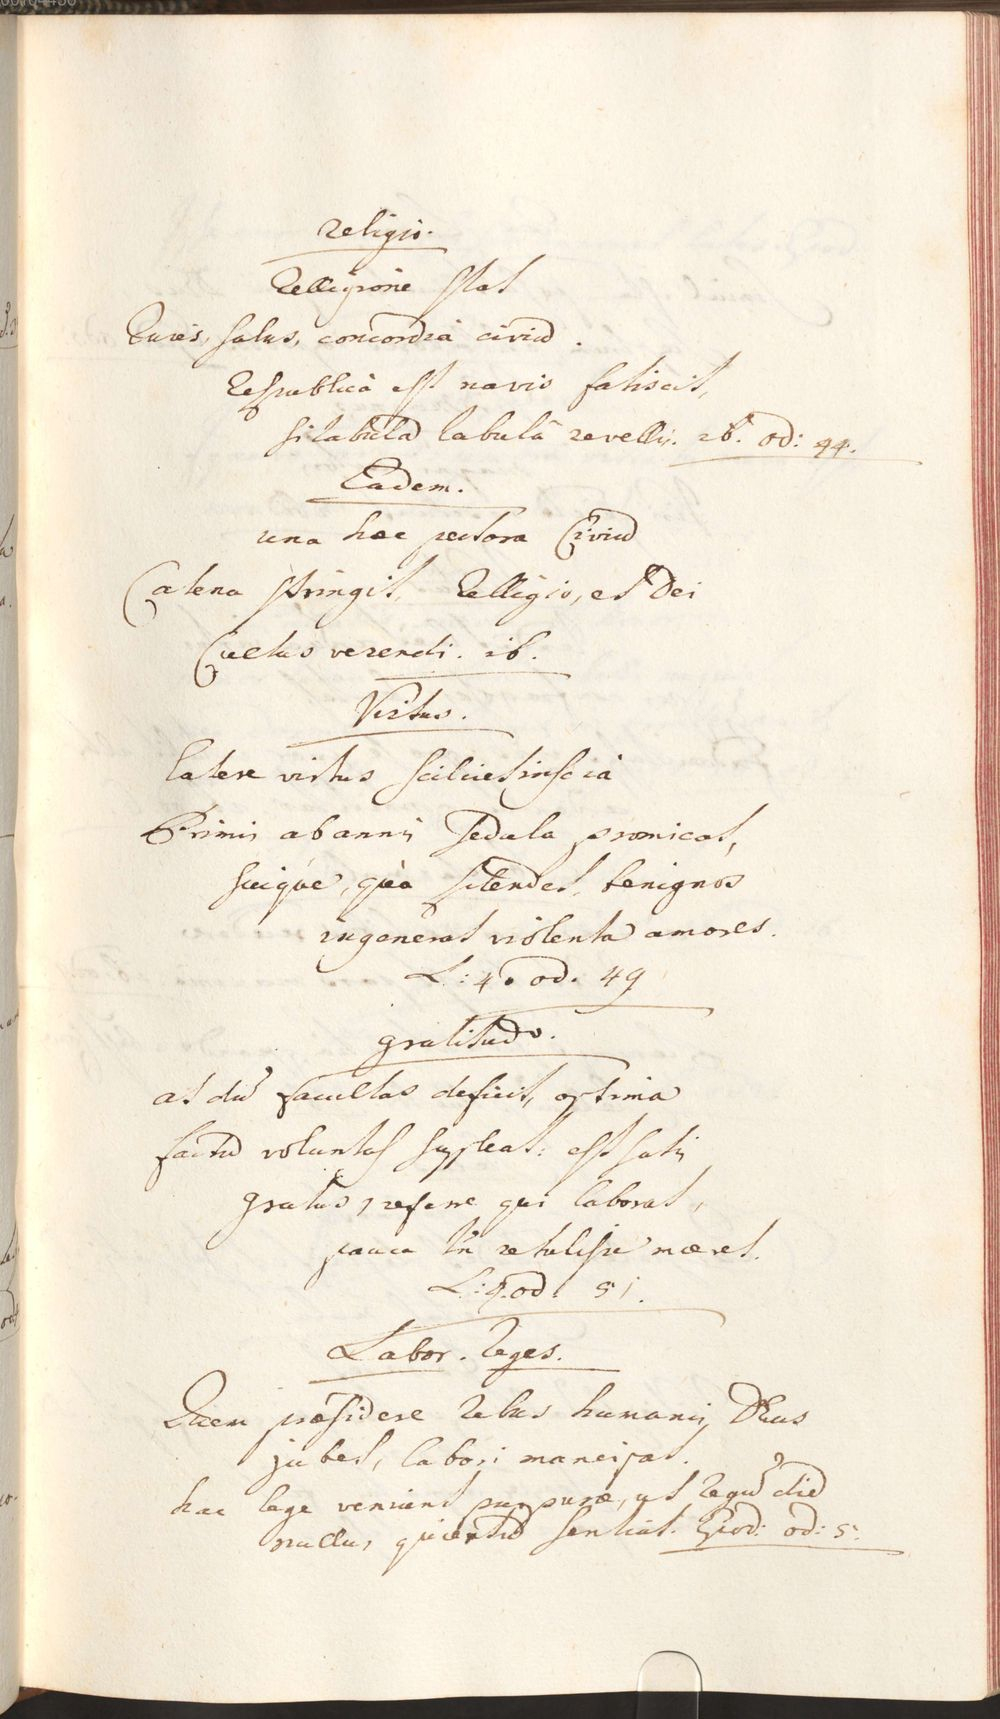 religio.
Relligione stat
Quies, salus, concordia civiū.
Respublica est navis fatiscit,
si tabulā tabulâ revellis. ib. od: 44.
Eadem.
una haec pectora Civiū
Catena stringit, Relligio, et Dei
Cultus verendi. ib.
Virtus.
latere virtus scilicet inscia
Primis ab annis sedula promicat,
suique, qua splendet, benignos
ingenerat violenta amores.
L: 4. od. 49
gratitudo.
at dū facultas deficit, optima
factū voluntas suppleat: est satis
gratus, referre qui laborat,
pauca tn̄ retulisse maeret.
L: 4. od. 51.
Labor. Reges.
Quem praesidere Rebus humanis Deus
jubet, labori mancipat.
hac lege veniunt purpurae, ut Regū diē
nullus quietū sentiat. Epod: od: 5.